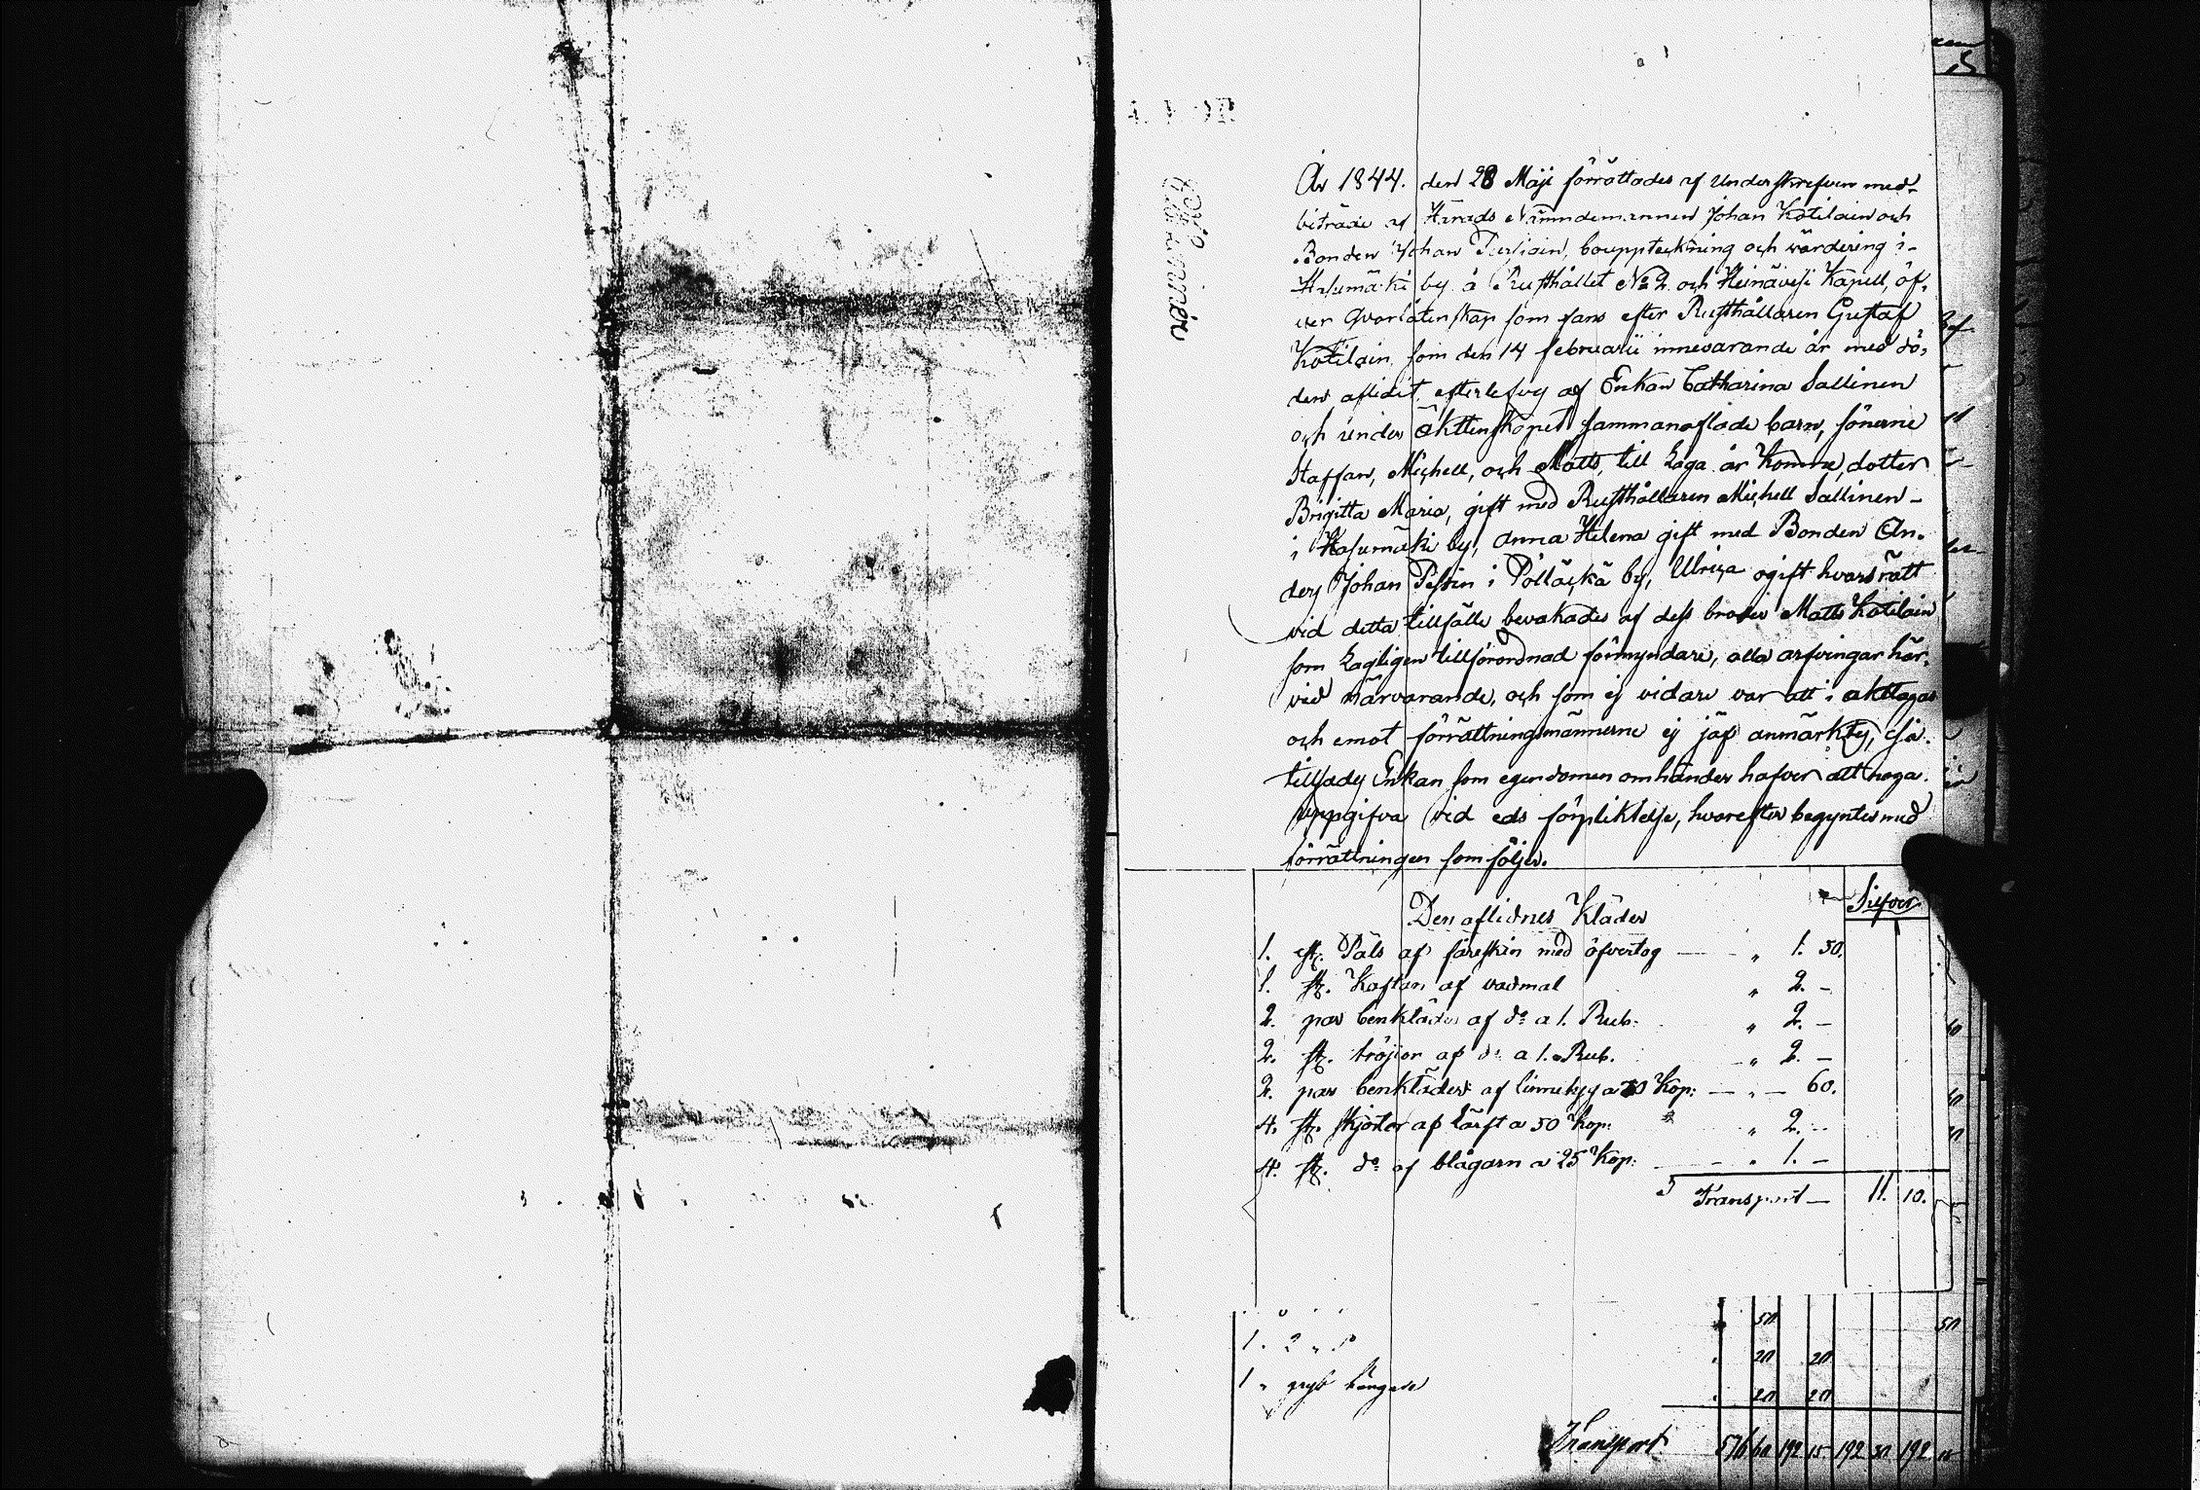 År 1844. den 28 Maji förrättades af Underskrefven med
biträde af Härads Nämndemannen Johan Kotilain och
Bonden Johan bouppteckning och värdering i
Hasumäki by å Rusthållet No 2. och Heinävesi Kapell, öf,
ver Qvarlåtenskap som fans efter Rusthållaren Gustaf
Kotilain som den 14 februarii innevarande år med dö,
den aflidit, efterlefvg af Enkan Catharina Sallinen
och under äktenskapet sammanaflade barn, sönerne
Staffan, Michell, och Matts, till Laga år Komne, dotter
Brigitta Maria, gift med Rusthållaren Michell Sallinen
i Hasumäki by, Anna Helena gift med Bonden An,
ders Johan i Pölläckä by, Ulrica ogift hvars rätt
vid detta tillfälle bevakades af dess broder Matts Kotilain
som Lagligen tillförordnad förmyndare, alla arfvingar här,
vid närvarande, och som ej vidare var att i akttagas
och emot förrättningsmännerne ej jäf anmärktes, så
tillsades Enkan som egendomen omhänder hafver att noga
uppgifva vid eds förpliktelse, hvarefter begyntes med
förrättningen som följer.
Silfver
Den aflidnes Kläder
1. st. Päls af fårskin med öfvertog — " 1. 50.
1. st. Kaftan af vadmal " 2. —
2. par benkläder af do a 1. Rub. " 2. —
2. st. tröjior af do a 1. Rub. — " 2. —
2. par benkläder af linnetyg a 30 Kop: — " — 60.
4. st. skjortor af lärft a 50 Kop: " 2. —
4. st. do af blågarn a 25 Kop: — " 1. —
Transport — 11. 10.
50 50
1. 20 20
1 " 20 20
Transport 576 60 192 15 192 30 192